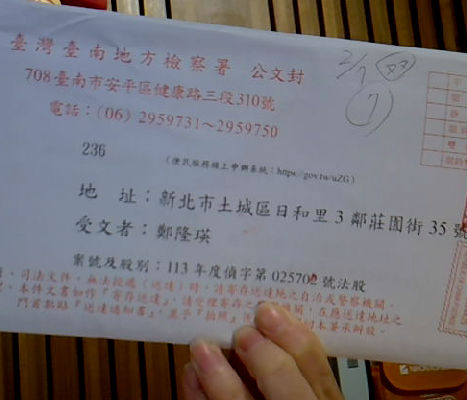 臺灣臺南地方檢察署 公文封
708臺南市安平區健康路三段310號
電話：(06) 2959731～2959750
2/7
7
236
（便民服務線上申辦系統：https://gov.tw/uZG）
地 址：新北市土城區日和里3鄰莊園街35號
受文者：鄭隆瑛
案號及股別：113年度偵字第025702號法股
、司法文件，無法投遞（送達）時，請寄存送達地之自治或警察機關。
、本件文書如作『寄存送達』，請受理寄存之 機關，在應送達地址之
門首黏貼『送達通知書』，並予『拍照』